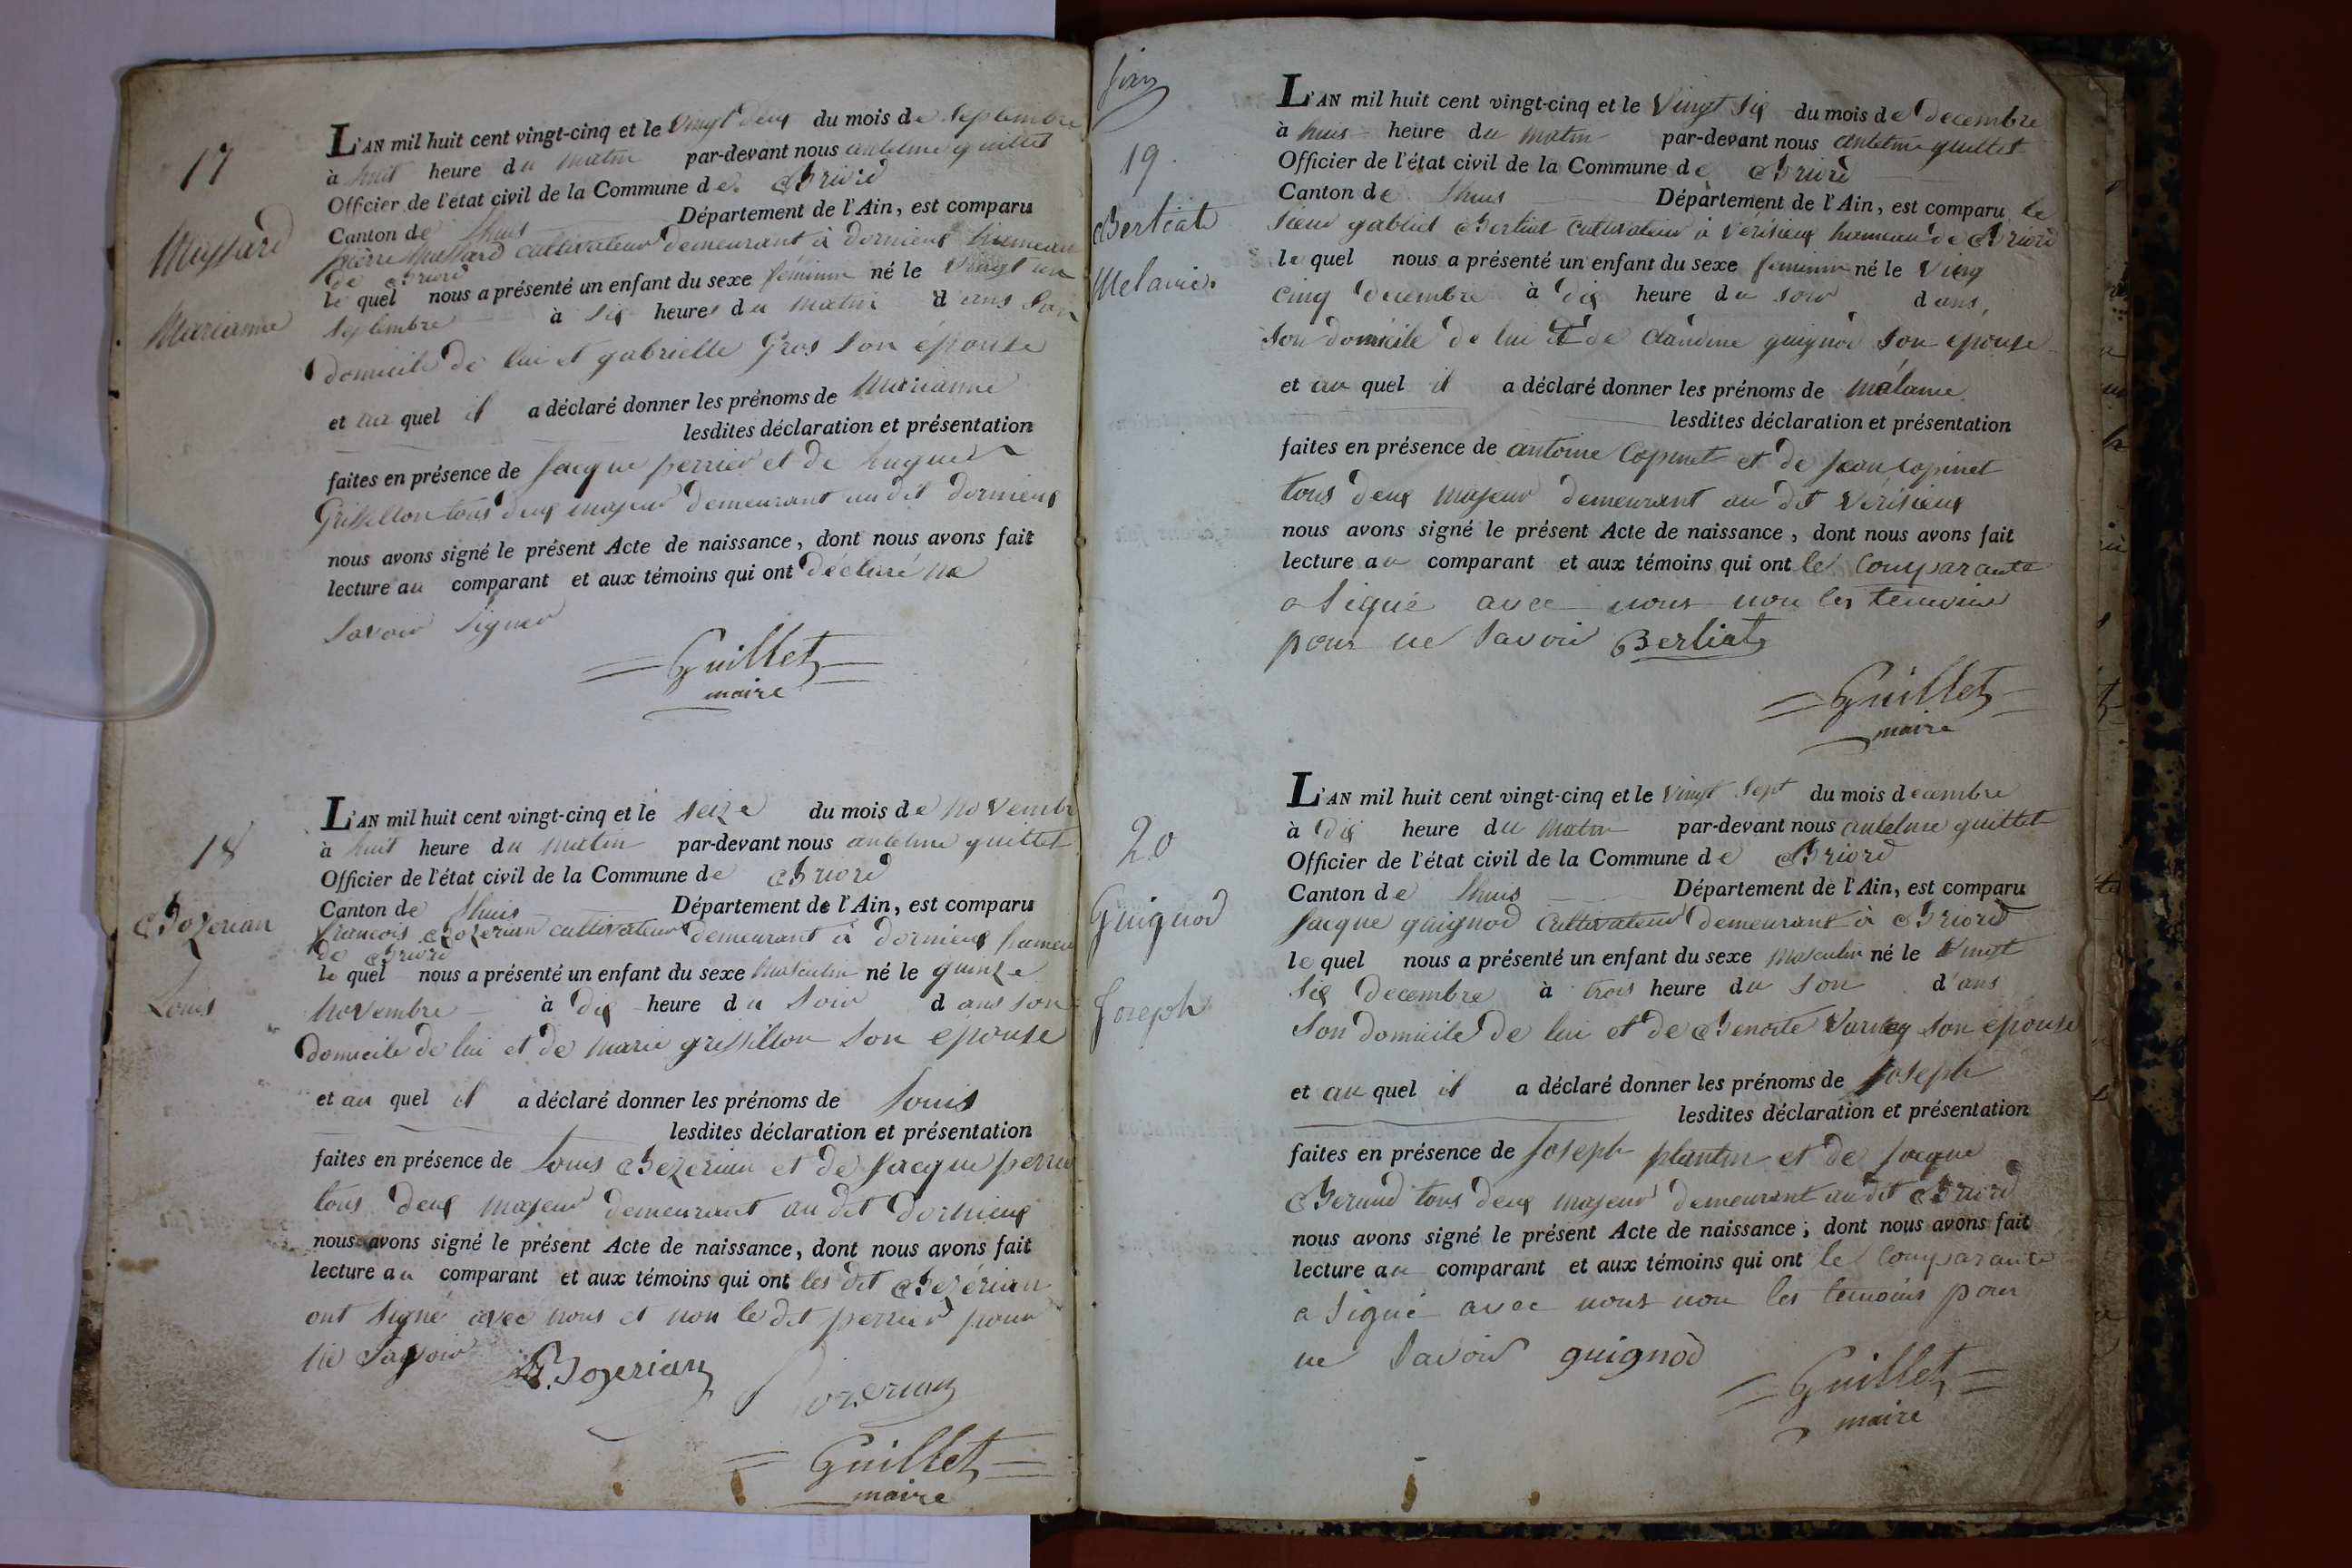 17
Massard
Marianne
L'AN mil huit cent vingt-cinq et le vingt deux du mois de septembre
à huit heure du matin par-devant nous antelme guillet
Officier de l'état civil de la Commune de Briord
Canton de Lhuis Département de l'Ain, est comparu
pierre Massard cultivateur demeurant à dornieux hameau
de Briord
le quel nous a présenté un enfant du sexe féminin né le vingt un
septembre à six heures du matin dans son
domicile de lui et gabrielle Gros son épouse
et au quel il a déclaré donner les prénoms de Marianne
lesdites déclaration et présentation
faites en présence de Jacque perrier et de hugues
Grissillon tous deux majeur demeurant au dit dornieux
nous avons signé le présent Acte de naissance, dont nous avons fait
lecture au comparant et aux témoins qui ont déclaré ne
savoir signer
Guillet
maire
18
Bozerian
Louis
L'AN mil huit cent vingt-cinq et le seize du mois de novembre
à huit heure du matin par-devant nous antelme guillet
Officier de l'état civil de la Commune de Briord
Canton de Lhuis Département de l'Ain, est comparu
francois Bozerian cultivateur demeurant à dornieux hameau
de Briord
le quel nous a présenté un enfant du sexe masculin né le quinze
novembre à dix heure du soir dans son
domicile de lui et de marie grissillon son epouse
et au quel il a déclaré donner les prénoms de Louis
lesdites déclaration et présentation
faites en présence de Louis Bezerian et de Jacque perrier
tous deux majeur demeurant au dit dornieux
nous avons signé le présent Acte de naissance, dont nous avons fait
lecture au comparant et aux témoins qui ont les dit Bezérian
ont signé avec nous et non le dit perrier pour
ne savoir Bozerian
Bozerian
Guillet
maire
19
Bertiat
Melanie
L'AN mil huit cent vingt-cinq et le vingt six du mois de decembre
à huis heure du matin par-devant nous antelme guillet
Officier de l'état civil de la Commune de Briord
Canton de Lhuis Département de l'Ain, est comparu le
sieur gabriel Bertiat cultivateur à vérisieux hameau de Briord
le quel nous a présenté un enfant du sexe feminin né le ving
cinq decembre à dix heure du soir dans
son domicile de lui et de claudine guignod son epouse
et au quel il a déclaré donner les prénoms de mélanie
lesdites déclaration et présentation
faites en présence de antoine Copinet et de Jean Copinet
tous deux majeur demeurant au dit vérisieux
nous avons signé le présent Acte de naissance, dont nous avons fait
lecture au comparant et aux témoins qui ont le comparante
a signé avec nous non les temoins
pour ne savoir Berliat
Guillet
maire
20
Guignod
Joseph
L'AN mil huit cent vingt-cinq et le vingt sept du mois decembre
à dix heure du matin par-devant nous antelme guillet
Officier de l'état civil de la Commune de Briord
Canton de Lhuis Département de l'Ain, est comparu
Jacque guignod cultivateur demeurant à Briord
le quel nous a présenté un enfant du sexe masculin né le vingt
six decembre à trois heure du soir d'ans
son domicile de lui et de Benoite Varney son epouse
et au quel il a déclaré donner les prénoms de Joseph
lesdites déclaration et présentation
faites en présence de Joseph plantin et de Jacque
Beraud tous deux majeur demeurant au dit Briord
nous avons signé le présent Acte de naissance; dont nous avons fait
lecture au comparant et aux témoins qui ont le comparante
a signé avec nous non les temoins pour
ne savoir guignod
Guillet
maire